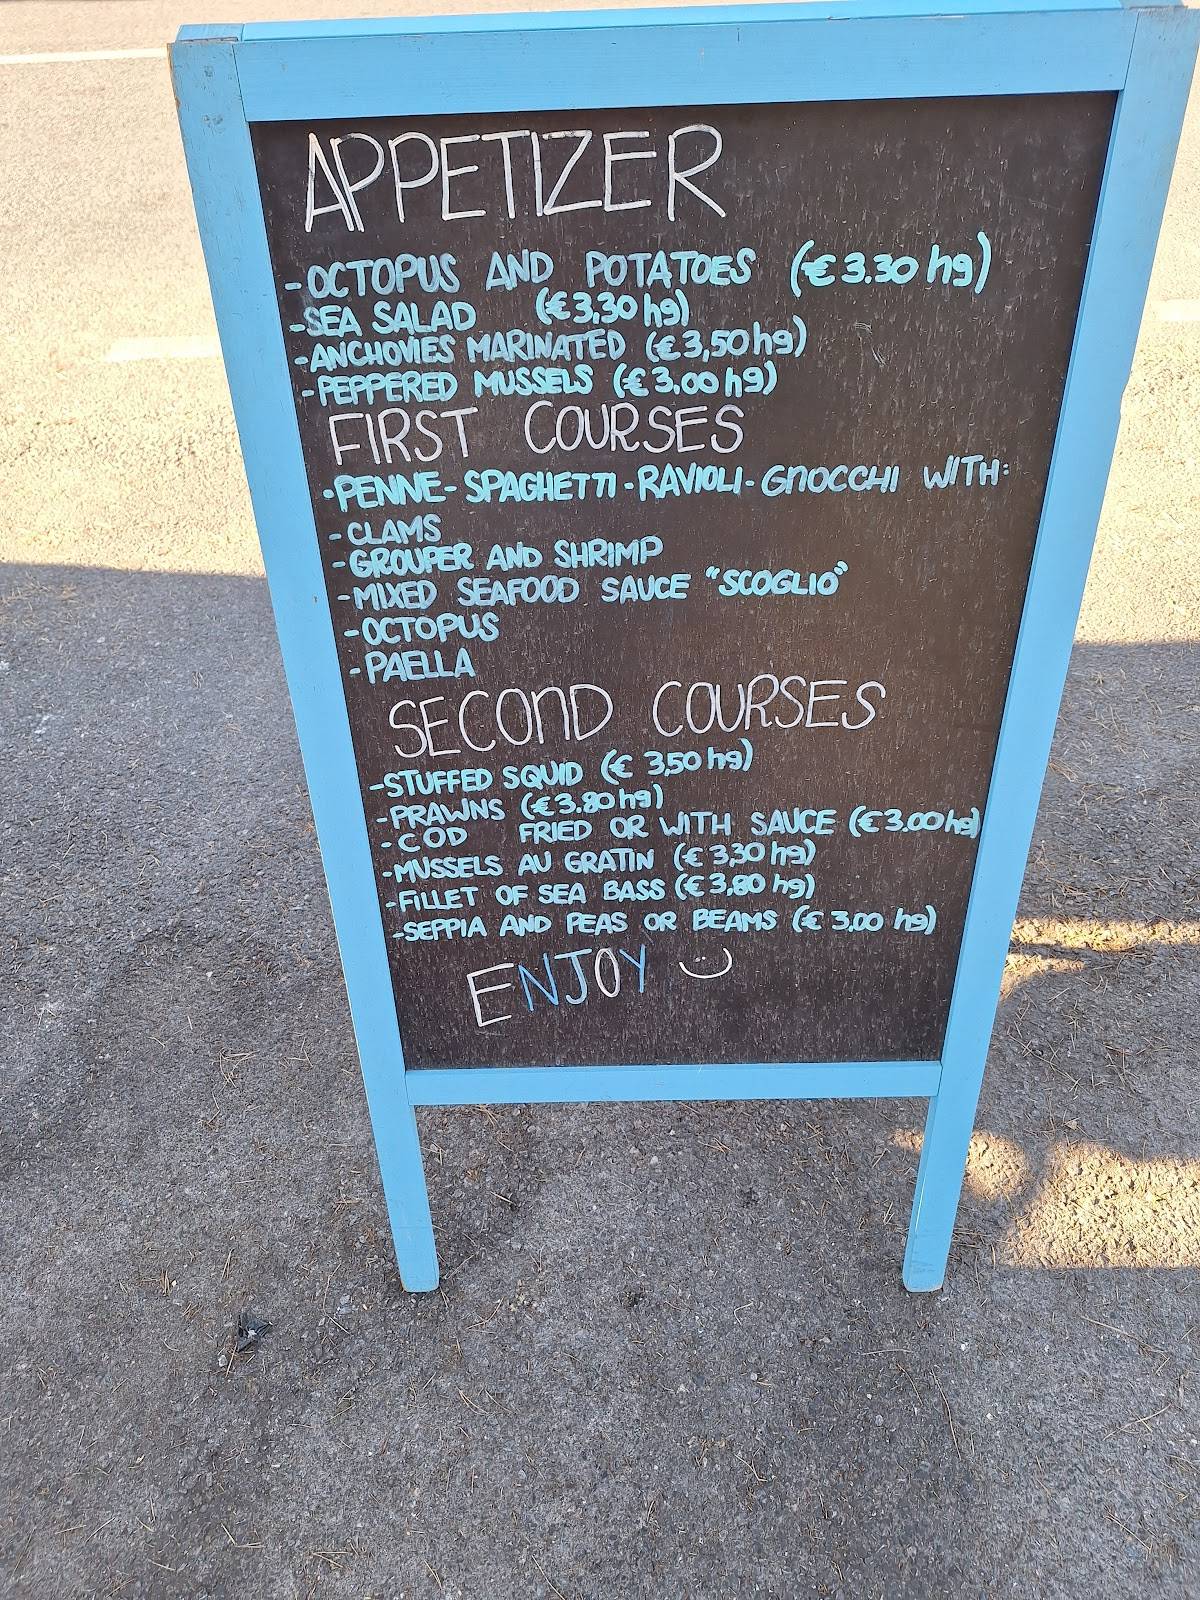 APPETIZER
-OCTOPUS AND POTATOES (€3.30 hg)
-SEA SALAD (€3,30 hg)
-ANCHOVIES MARINATED (€3,50hg)
-PEPPERED MUSSELS (€3.00 hg)
FIRST COURSES
-PENNE- SPAGHETTI -RAVIOLI- GNOCCHI WITH:
-CLAMS
-GROUPER AND SHRIMP
-MIXED SEAFOOD SAUCE "SCOGLIO"
-OCTOPUS
-PAELLA
SECOND COURSES
-STUFFED SQUID (€ 3,50 hg)
-PRAWNS (€3.80hg)
-COD FRIED OR WITH SAUCE (€3.00hg)
-MUSSELS AU GRATIN (€ 3,30 hg)
-FILLET OF SEA BASS (€3,80 hg)
-SEPPIA AND PEAS OR BEAMS (€ 3.00 hg)
ENJOY